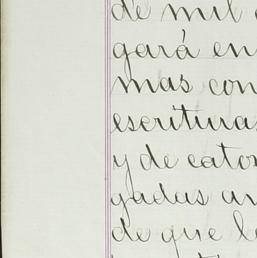 de mil
gará en
mas con
escrituras
y de cator
gadas an
de que le